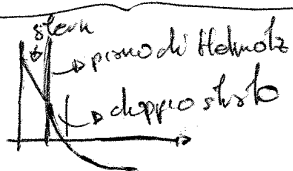 stern
piano di Helmotz
doppio strato